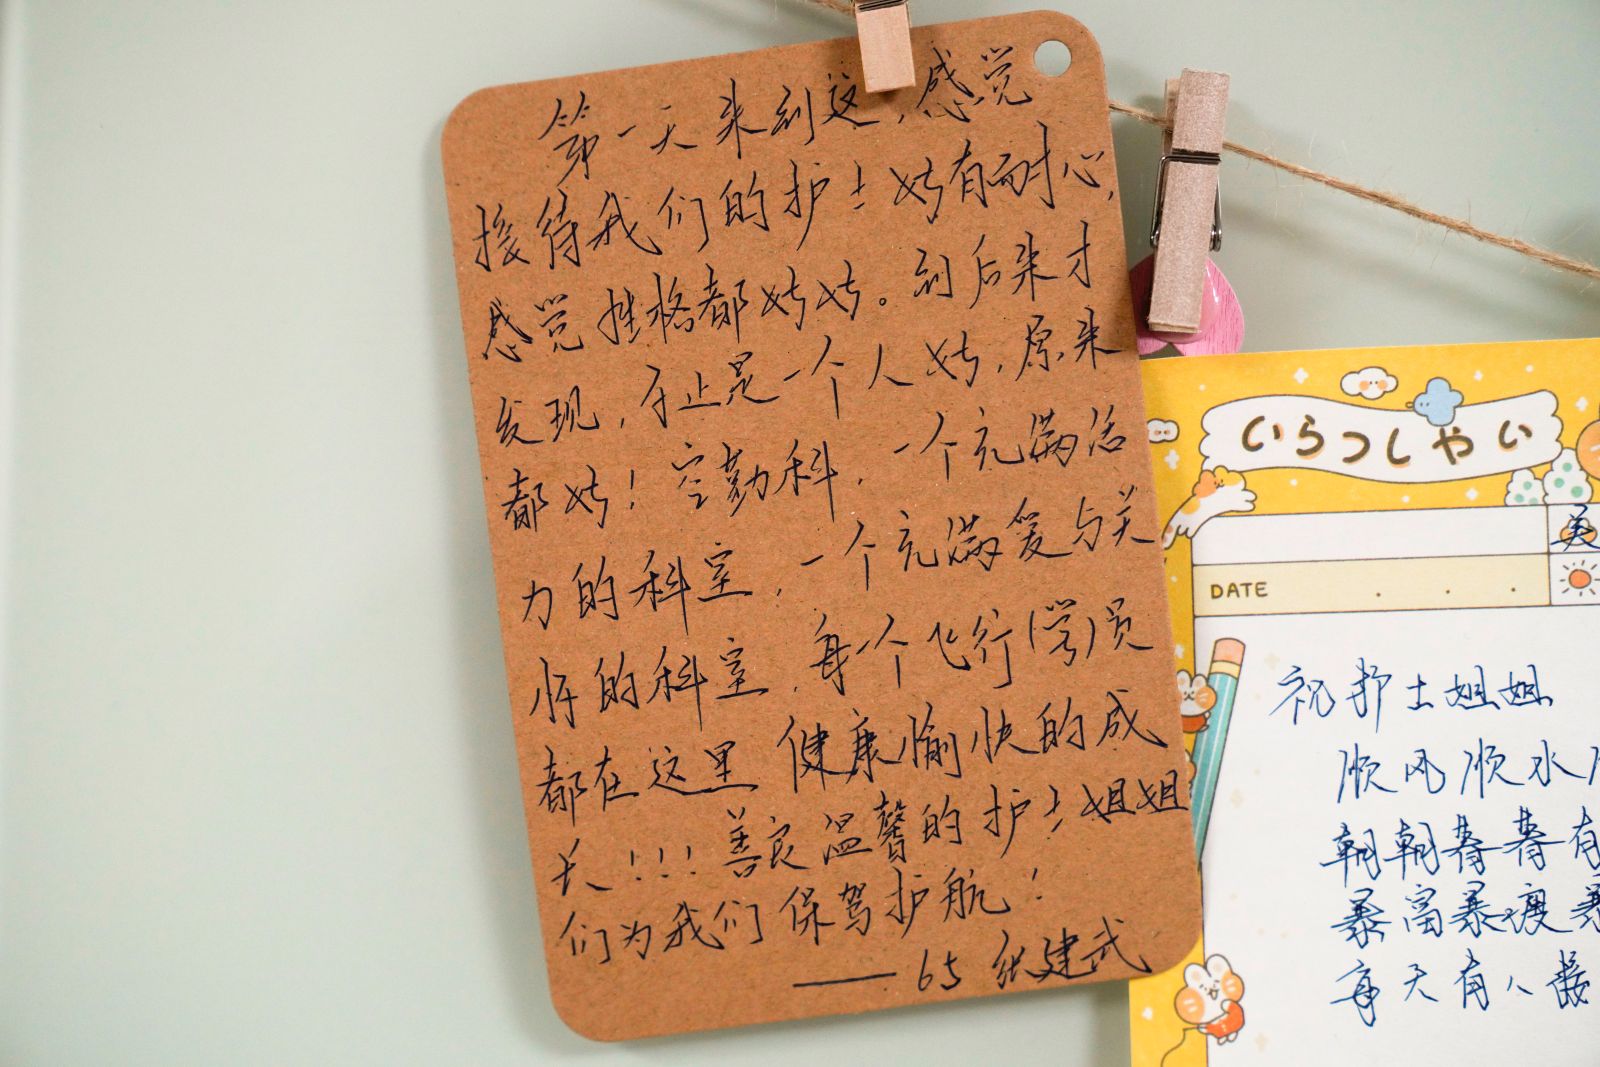 第一天来到这,感觉
接待我们的护士好有耐心,
感觉性格都好好。到后来才
发现,不止是一个人好,原来
都好!空勤科,一个充满活
力的科室,一个充满爱与关
怀的科室,每一个飞行(学)员
都在这里健康愉快的成
长!!!善良温馨的护士姐姐
们为我们保驾护航!
—— 65 张建武
いらっしゃい
美
DATE . . .
祝护士姐姐
顺风顺水
朝朝暮暮有
暴富暴瘦暴
每天有人接